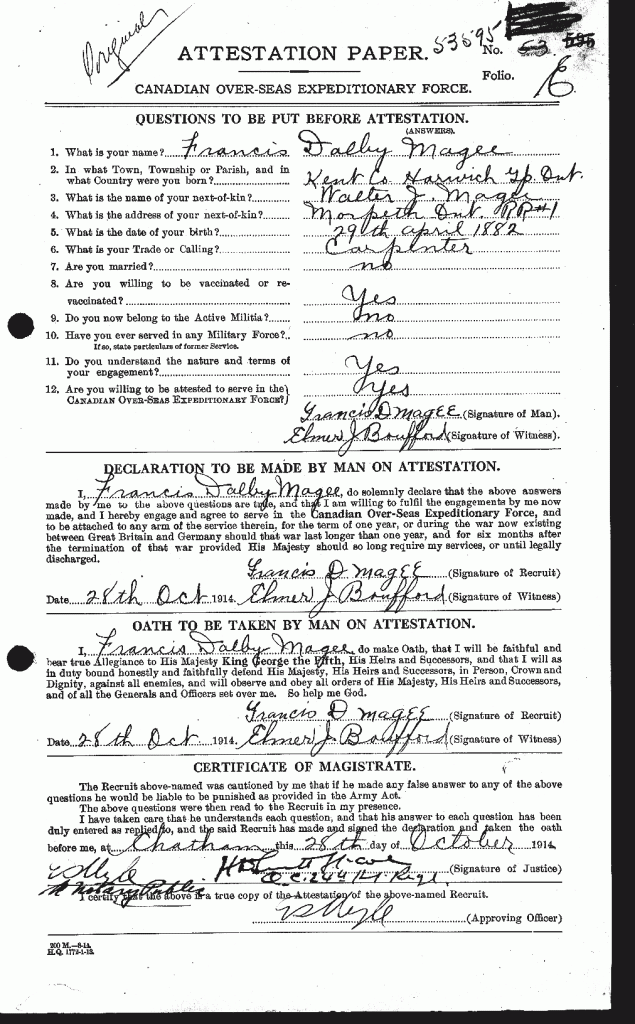 Original
ATTESTATION PAPER.
53595
No. 53 595
Folio.
CANADIAN OVER-SEAS EXPEDITIONARY FORCE.
QUESTIONS TO BE PUT BEFORE ATTESTATION.
(ANSWERS).
1. What is your name? Francis Dalby Magee
2. In what Town, Township or Parish, and in
what Country were you born? Kent Co Harwich Tp. Ont.
3. What is the name of your next-of-kin? Walter J. Magee
4. What is the address of your next-of-kin? Morpeth Ont. RR#1
5. What is the date of your birth? 29th april 1882
6. What is your Trade or Calling? Carpenter
7. Are you married? no
8. Are you willing to be vaccinated or re-
vaccinated? Yes
9. Do you now belong to the Active Militia? no
10. Have you ever served in any Military Force? no
If so, state particulars of former Service.
11. Do you understand the nature and terms of
your engagement? Yes
12. Are you willing to be attested to serve in the
CANADIAN OVER-SEAS EXPEDITIONARY FORCE? Yes
Francis D MAGEE (Signature of Man).
Elmer J Boufford (Signature of Witness).
DECLARATION TO BE MADE BY MAN ON ATTESTATION.
I, Francis Dalby Magee, do solemnly declare that the above answers
made by me to the above questions are true, and that I am willing to fulfil the engagements by me now
made, and I hereby engage and agree to serve in the Canadian Over-Seas Expeditionary Force, and
to be attached to any arm of the service therein, for the term of one year, or during the war now existing
between Great Britain and Germany should that war last longer than one year, and for six months after
the termination of that war provided His Majesty should so long require my services, or until legally
discharged.
Francis D MAGEE (Signature of Recruit)
Date 28th Oct 1914. Elmer J Boufford (Signature of Witness)
OATH TO BE TAKEN BY MAN ON ATTESTATION.
I, Francis Dalby Magee, do make Oath, that I will be faithful and
bear true Allegiance to His Majesty King George the Fifth, His Heirs and Successors, and that I will as
in duty bound honestly and faithfully defend His Majesty, His Heirs and Successors, in Person, Crown and
Dignity, against all enemies, and will observe and obey all orders of His Majesty, His Heirs and Successors,
and of all the Generals and Officers set over me. So help me God.
Francis D MAGEE (Signature of Recruit)
Date 28th Oct 1914. Elmer J Boufford (Signature of Witness)
CERTIFICATE OF MAGISTRATE.
The Recruit above-named was cautioned by me that if he made any false answer to any of the above
questions he would be liable to be punished as provided in the Army Act.
The above questions were then read to the Recruit in my presence.
I have taken care that he understands each question, and that his answer to each question has been
duly entered as replied to, and the said Recruit has made and signed the declaration and taken the oath
before me, at Chatham this 28th day of October 1914.
(Signature of Justice)
A Notary Public
O.C. 24th Regt.
I certify that the above is a true copy of the Attestation of the above-named Recruit.
(Approving Officer)
200 M.—8-14.
H.Q. 1772-1-13.